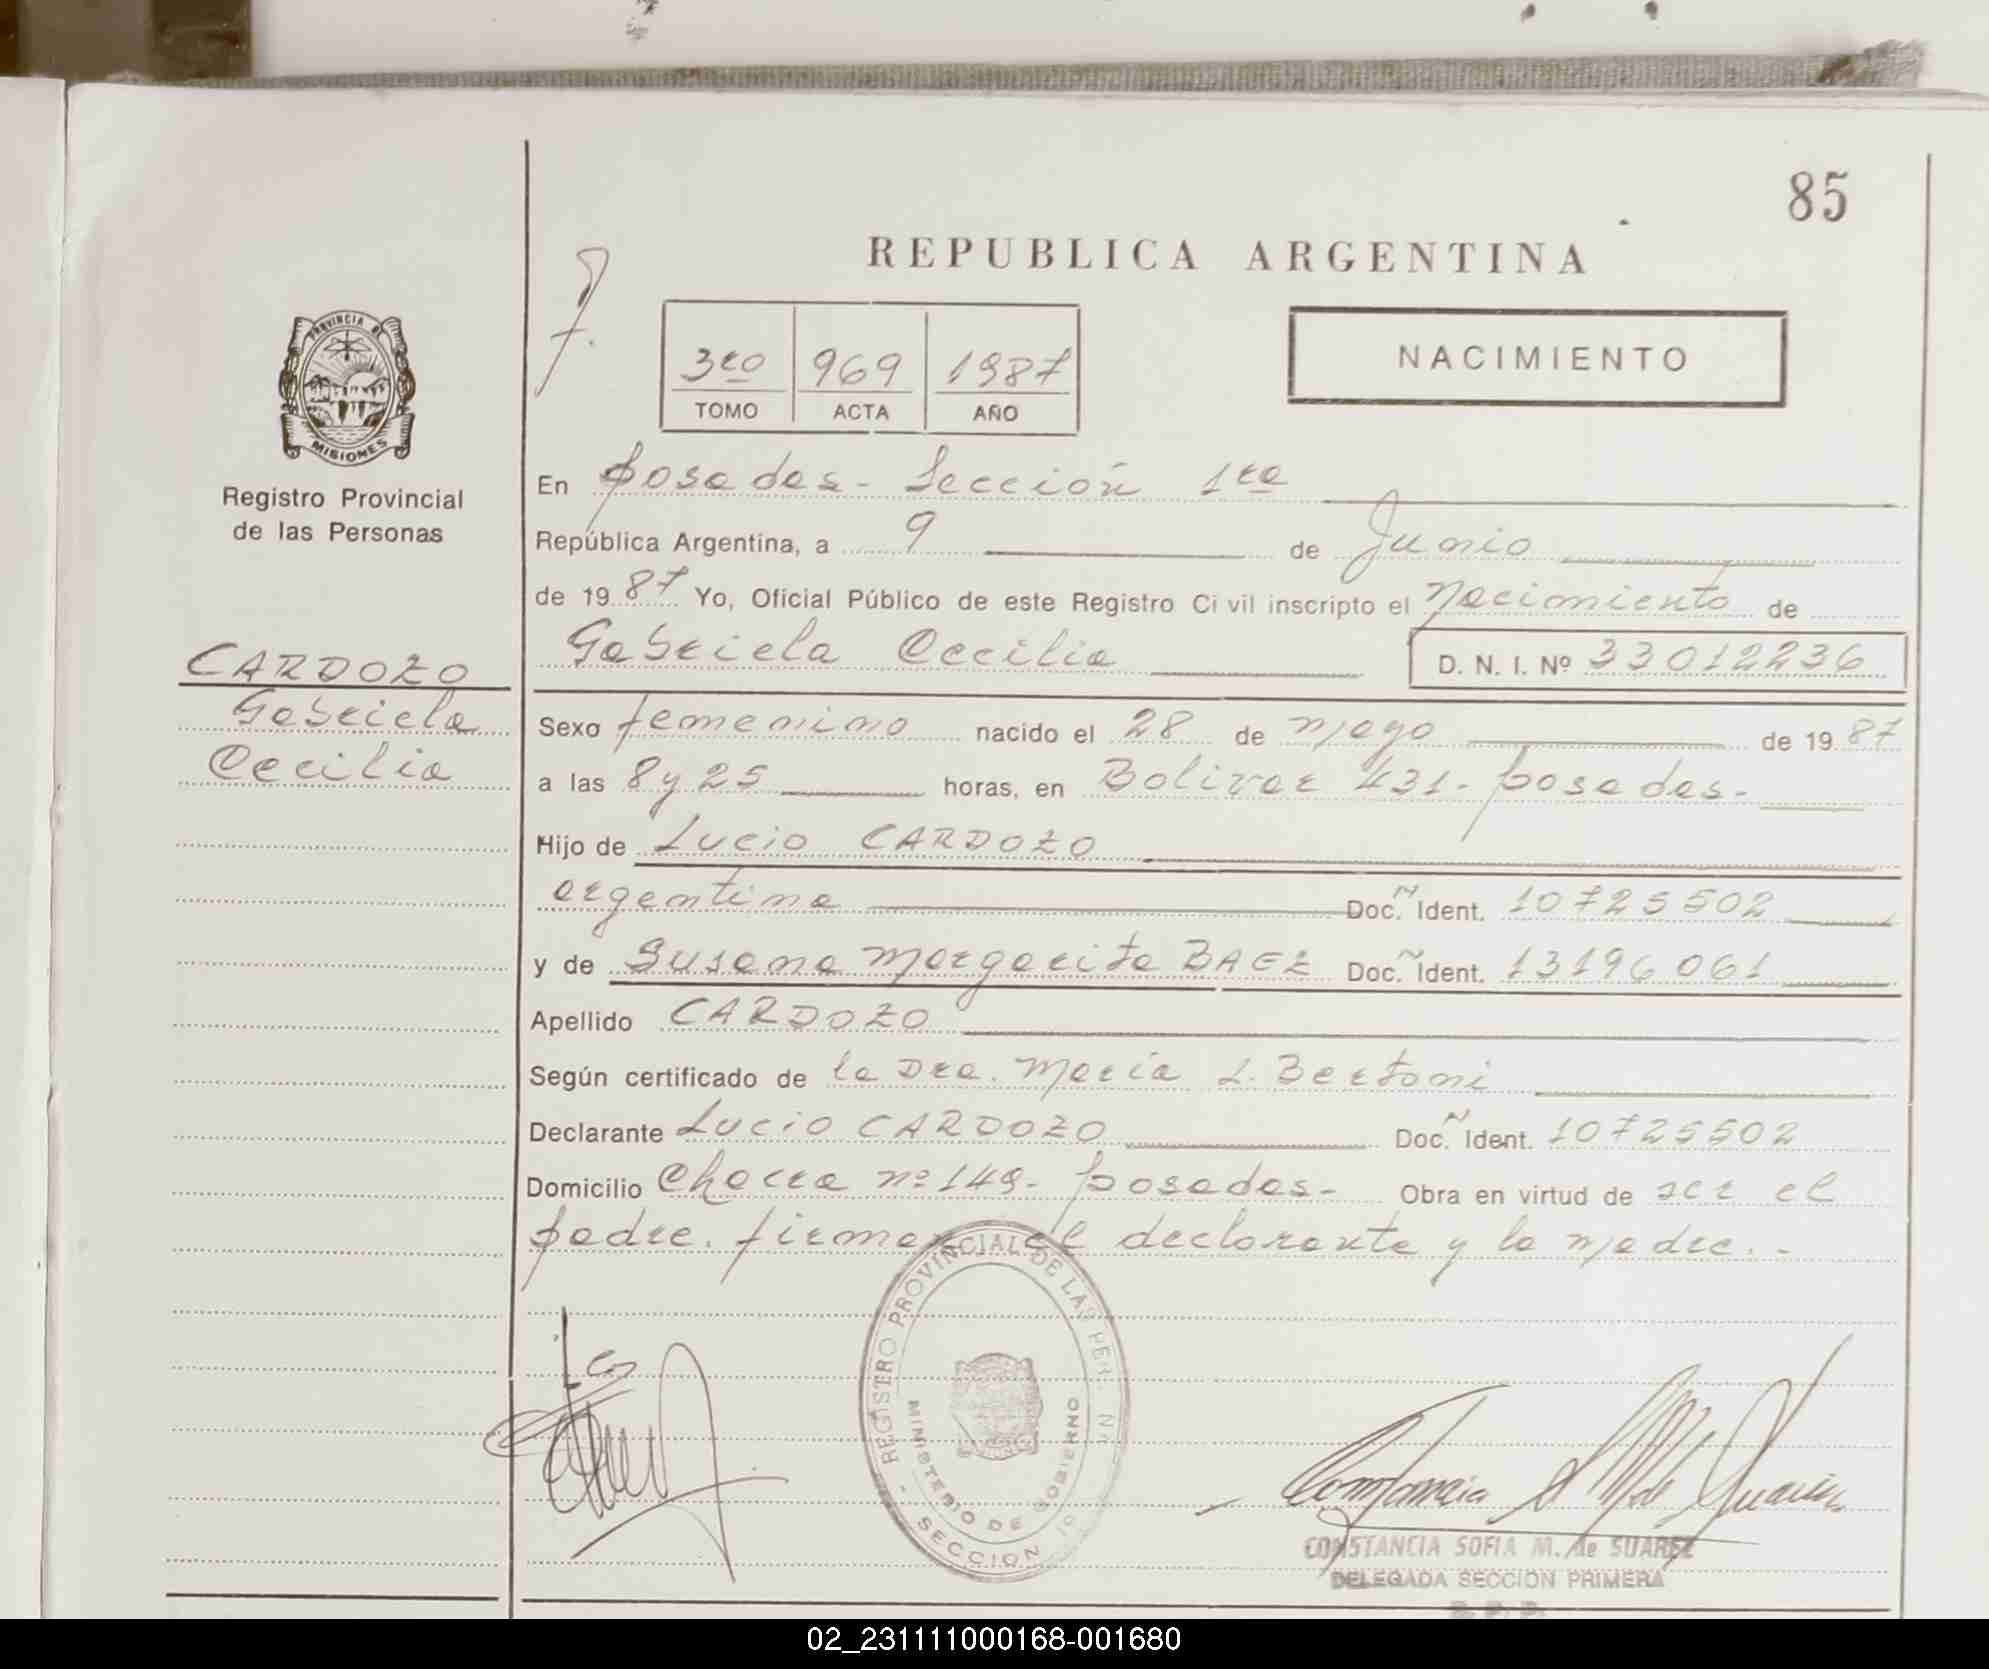 85
REPUBLICA ARGENTINA
PROVINCIA DE
MISIONES
Registro Provincial
de las Personas
3ro 969 1987
TOMO ACTA AÑO
NACIMIENTO
En Posadas - Sección 1ra
República Argentina, a 9 de Junio
de 19 87 Yo, Oficial Público de este Registro Civil inscripto el Nacimiento de
Gabriela Cecilia D. N. I. Nº 33012236
CARDOZO
Gabriela
Cecilia
Sexo femenino nacido el 28 de mayo de 19 87
a las 8 y 25 horas, en Bolivar 431 - Posadas -
Hijo de Lucio CARDOZO
argentino Doc. Ident. 10725502
y de Susana Margarita BAEZ Doc. Ident. 13196061
Apellido CARDOZO
Según certificado de la Dra. María L. Bertoni
Declarante Lucio CARDOZO Doc. Ident. 10725502
Domicilio Chacra nº 149 - Posadas - Obra en virtud de ser el
padre. firman el declarante y la madre. -
REGISTRO PROVINCIAL DE LAS PER.
MINISTERIO DE GOBIERNO
SECCION
Constancia S M de Suarez
CONSTANCIA SOFIA M. de SUAREZ
DELEGADA SECCION PRIMERA
R. P. P.
02_231111000168-001680